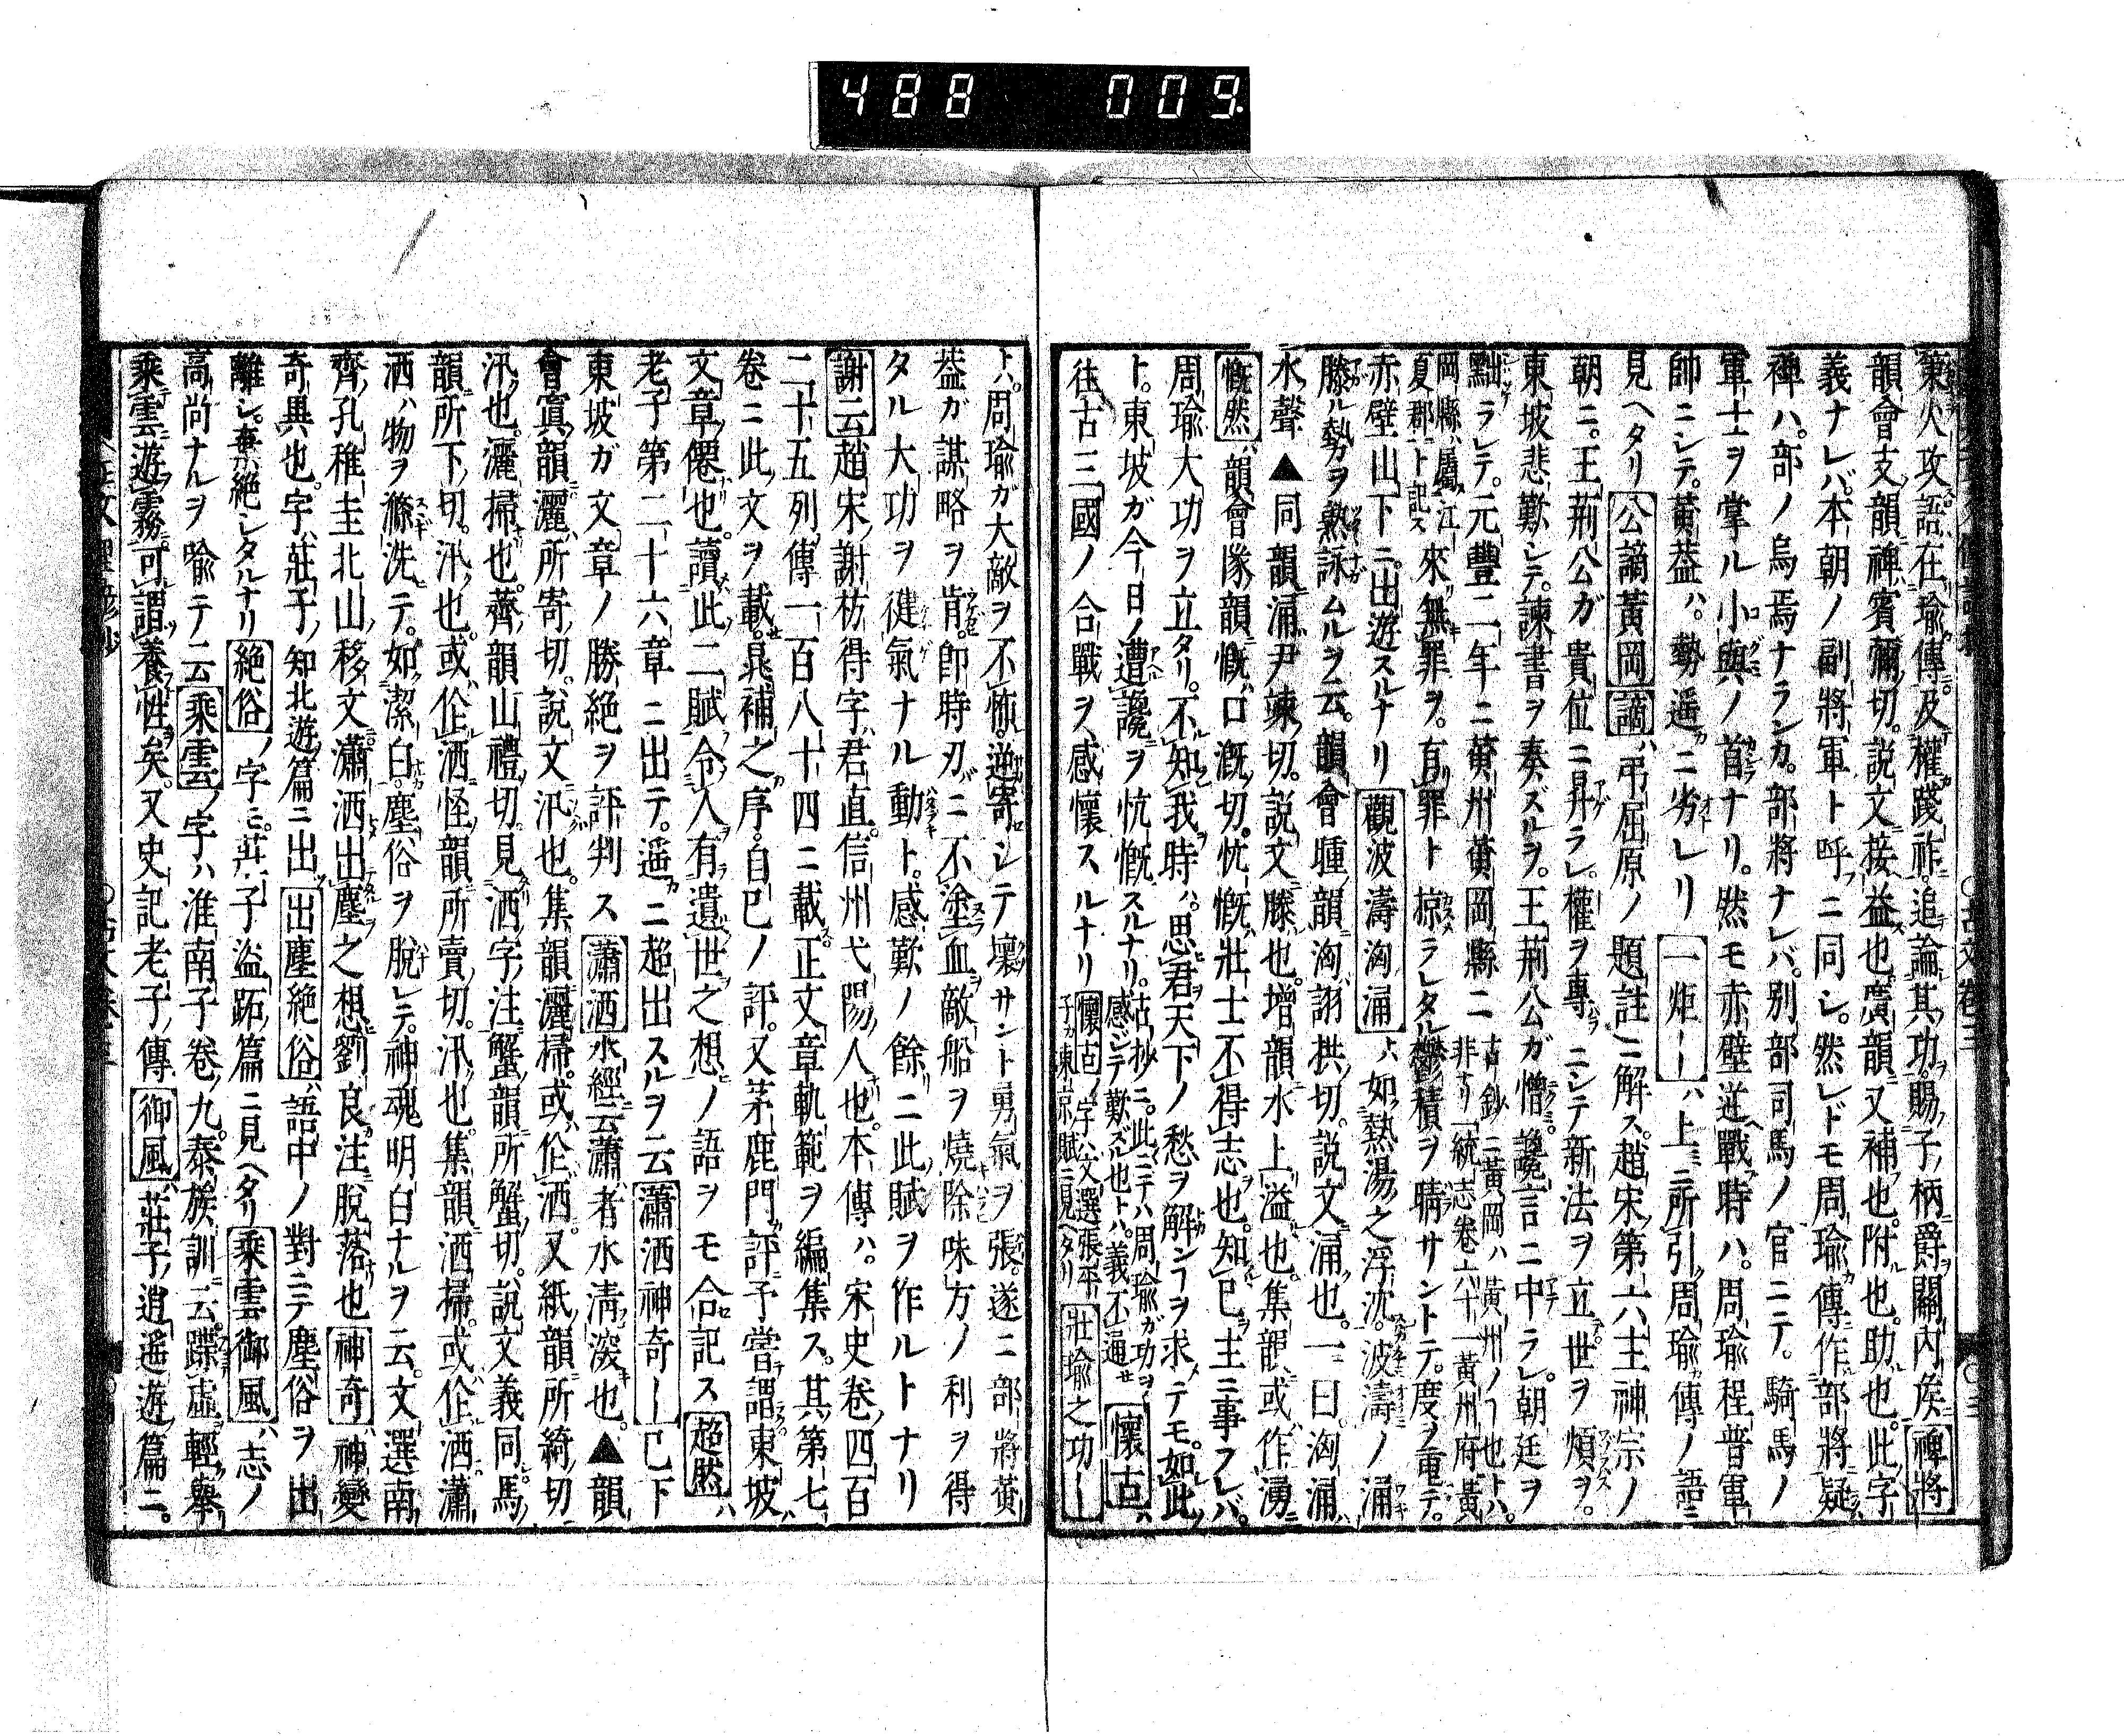 488 009
策火攻語在瑜傳及權踐祚追論其功賜子柄爵關內矦裨將
韻會支韻裨賓彌切説文接益也廣韻又補也附也助也此字
義ナレバ本朝ノ副將軍ト呼ニ同シ然レドモ周瑜傳作部將疑
裨ハ部ノ烏焉ナランカ部將ナレバ別部司馬ノ官ニテ騎馬ノ
軍士ヲ掌ル小與ノ首ナリ然モ赤壁逆戰時ハ周瑜程普軍
帥ニシテ黃葢ハ勢遥ニ劣レリ一炬ーハ上ニ所引周瑜傳ノ語ニ
見ヘタリ公謫黃岡謫ハ弔屈原ノ題註ニ解ス趙宋第六主神宗ノ
朝ニ王荊公ガ貴位ニ昇ラレ權ヲ專ニシテ新法ヲ立世ヲ煩ヲ
東坡悲歎シテ諫書ヲ奏ズルヲ王荊公ガ憎讒言ニ中ラレ朝廷ヲ
黜ラレテ元豐二年ニ黃州黃岡縣ニ古鈔ニ黃岡ハ黃州ノー也トハ非ナリ一統志卷六十一黃州府黃
岡縣ハ屬江夏郡ト記ス來無罪ヲ有罪ト掠ラレタル鬱積ヲ晴サントテ度ヲ重テ
赤壁山下ニ出遊スルナリ觀波濤洶涌ハ如熱湯之浮沈波濤ノ涌
滕ル勢ヲ熟詠ムルヲ云韻會腫韻洶詡拱切説文涌也一曰洶涌
水聲▲同韻涌尹竦切説文滕也增韻水上溢也集韻或作湧
慨然韻會隊韻慨口漑切忼慨壯士不得志也知巳主ニ事フレバ
周瑜大功ヲ立タリ不知我時ハ思君天下ノ愁ヲ解ンヿヲ求テモ如此
ト東坡ガ今日ノ遭讒ヲ忼慨スルナリ古抄ニ此ニテハ周瑜ガ功ヲ感シテ歎ズル也トハ義不通セ懷古ハ
往古三國ノ合戰ヲ感懷スルナリ懷古ノ字ハ文選張平子カ東京賦ニ見ヘタリ壯瑜之功ー
ハ周瑜ガ大敵ヲ不怖逆寄シテ壞サント勇氣ヲ張遂ニ部將黃
葢ガ謀略ヲ肯即時刃ニ不塗血敵船ヲ燒除味方ノ利ヲ得
タル大功ヲ健氣ナル動ト感歎ノ餘ニ此賦ヲ作ルトナリ
謝云趙宋謝枋得字君直信州弋陽人也本傳ハ宋史卷四百
二十五列傳一百八十四ニ載正文章軌範ヲ編集ス其第七
卷ニ此文ヲ載晁補之序自巳ノ評又茅鹿門評予嘗謂東坡
文章僊也讀此二賦令人有遺世之想ノ語ヲモ合記ス超然ハ
老子第二十六章ニ出テ遥ニ超出スルヲ云瀟洒神奇ー巳下
東坡ガ文章ノ勝絶ヲ評判ス瀟洒水經云瀟者水淸深也▲韻
會寘韻灑所寄切説文汛也集韻灑掃或作洒又紙韻所綺切
汛也灑掃也薺韻山禮切見洒字注蟹韻所蟹切説文義同馬
韻所下切汛也或作洒怪韻所賣切汛也集韻洒掃或作洒瀟
洒ハ物ヲ滌洗テ如潔白塵俗ヲ脫レテ神魂明白ナルヲ云文選南
齊孔稚圭北山移文瀟洒出塵之想劉良注脫落也神奇神變
奇異也字ハ莊子知北遊篇ニ出出塵絶俗語中ノ對ニテ塵俗ヲ出
離シ棄絶シタルナリ絶俗ノ字モ莊子盜跖篇ニ見ヘタリ乘雲御風ハ志ノ
高尚ナルヲ喩テ云乘雲ノ字ハ淮南子卷九泰族訓ニ云蹀虛輕舉
乘雲遊霧可謂養性矣又史記老子傳御風莊子逍遥遊篇ニ